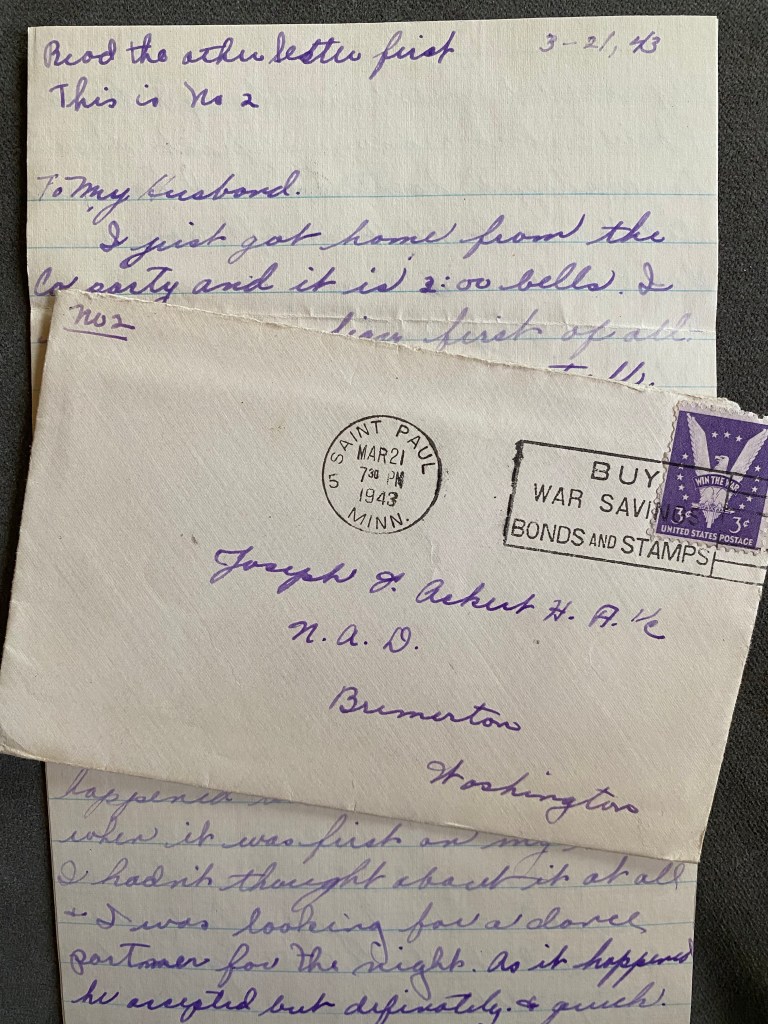 Read the other Letter first
3-21, 43
This is No 2
To My Husband.
I just got home from the
Co party and it is 2:00 bells. I
first of all
No 2
SAINT PAUL
MINN.
5
MAR 21
7 30 PM
1943
BUY
WAR SAVINGS
BONDS AND STAMPS
WIN THE WAR
3¢ 3¢
UNITED STATES POSTAGE
Joseph F. Ackert H. A. 1/c
N. A. D.
Bremerton
Washington
happened
when it was first on my
I hadn't thought about it at all
+ I was looking for a dance
partner for the night. As it happened
he accepted but definately. & quick.